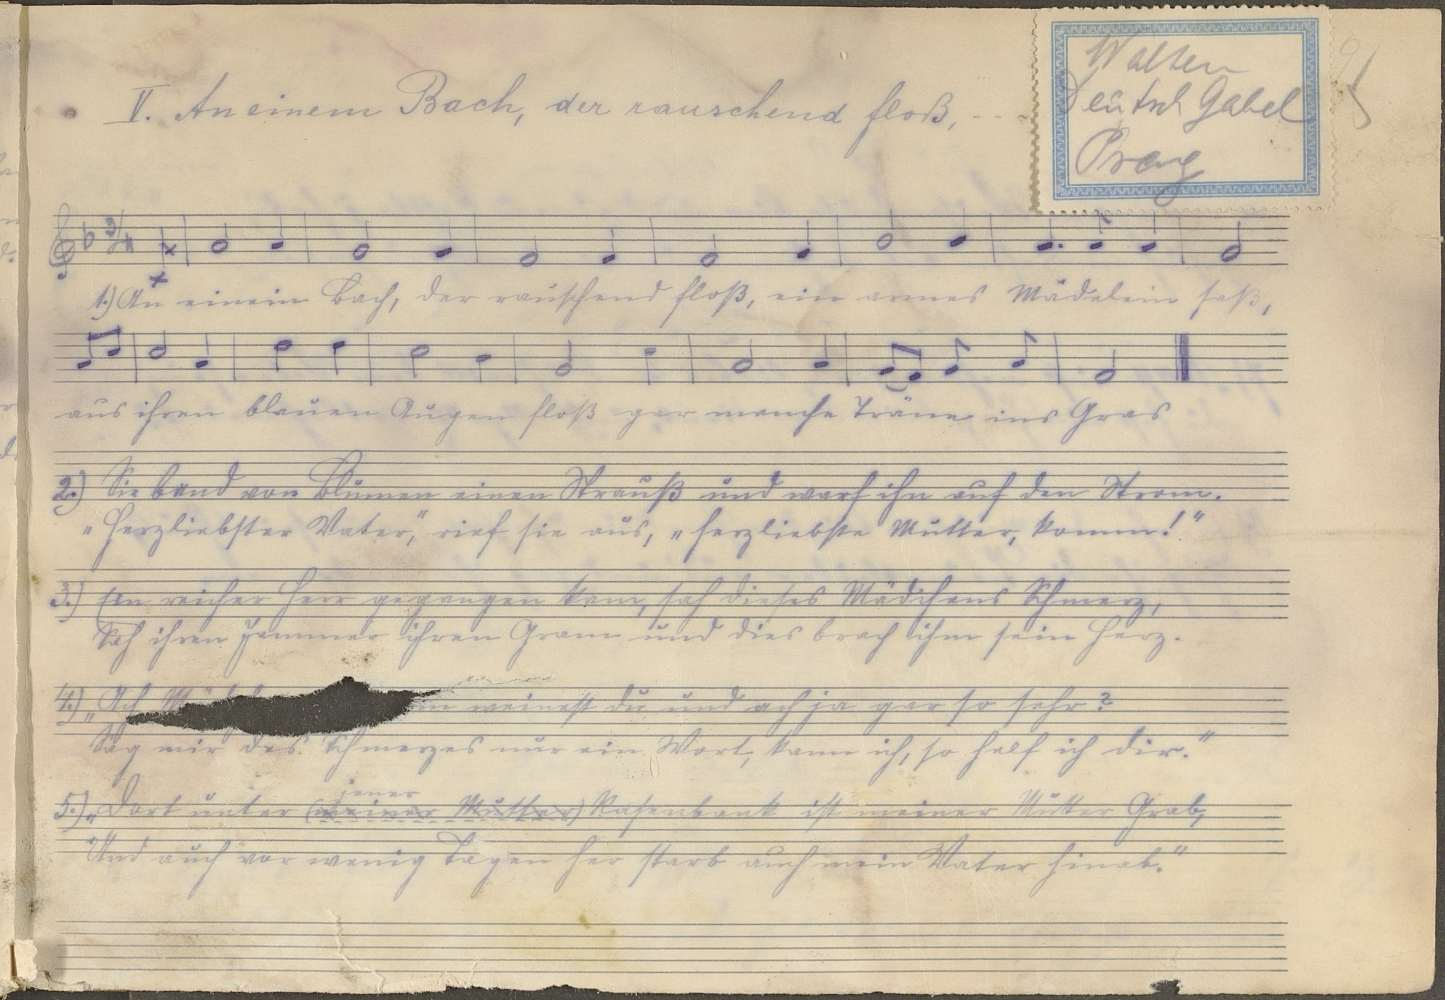 II. An einem Bach, der rauschend floß, - - -
Walten
Deutsch Gabel
Prag
1.) An einem Bach, der rauschend floß, ein armes Mädelein saß,
aus ihren blauen Augen floß gar manche Träne ins Gras
2.) Sie band von Blumen einen Strauß und warf ihn auf den Strom.
"Herzliebster Vater," rief sie aus, "herzliebste Mutter, komm!"
3.) Ein reicher Herr gegangen kam, sah dieses Mädchens Schmerz,
Sah ihren Jammer ihren Gram und dies brach ihm sein Herz.
4.) "Ach weinest du und ach ja gar so sehr?
Sag mir des Schmerzes nur ein Wort, kann ich, so helf ich dir."
jener
5.) "Dort unter (meiner Mutter) Rasenbank ist meiner Mutter Grab,
Und auch vor wenig Tagen her starb auch mein Vater hinab."